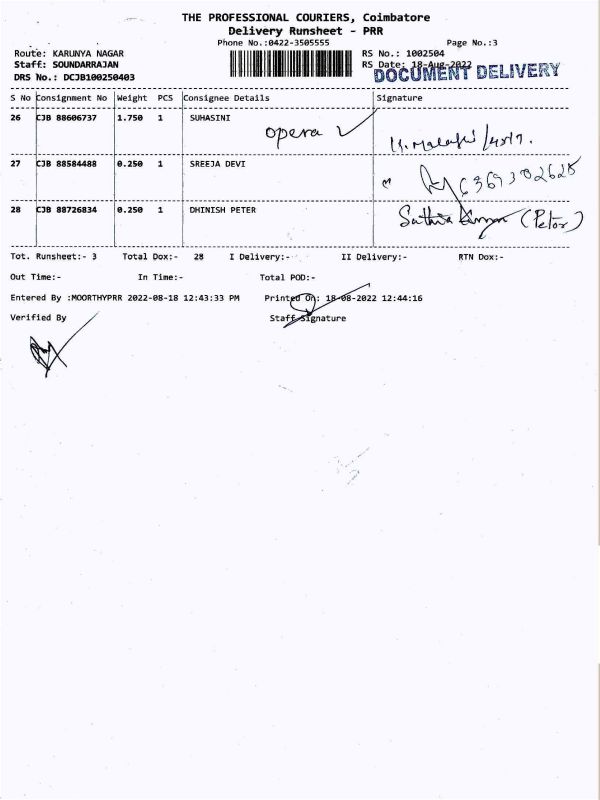 THE PROFESSIONAL COURIERS, Coimbatore
Delivery Runsheet - PRR
Phone No.:0422-3505555 Page No.:3
Route: KARUNYA NAGAR RS No.: 1002504
Staff: SOUNDARRAJAN RS Date: 18-Aug-2022
DOCUMENT DELIVERY
DRS No.: DCJB100250403
S No Consignment No Weight PCS Consignee Details Signature
26 CJB 88606737 1.750 1 SUHASINI
opera
27 CJB 88584488 0.250 1 SREEJA DEVI
6369302628
28 CJB 88726834 0.250 1 DHINISH PETER
(Peter)
Tot. Runsheet:- 3 Total Dox:- 28 I Delivery:- II Delivery:- RTN Dox:-
Out Time:- In Time:- Total POD:-
Entered By :MOORTHYPRR 2022-08-18 12:43:33 PM Printed On: 18-08-2022 12:44:16
Verified By Staff Signature